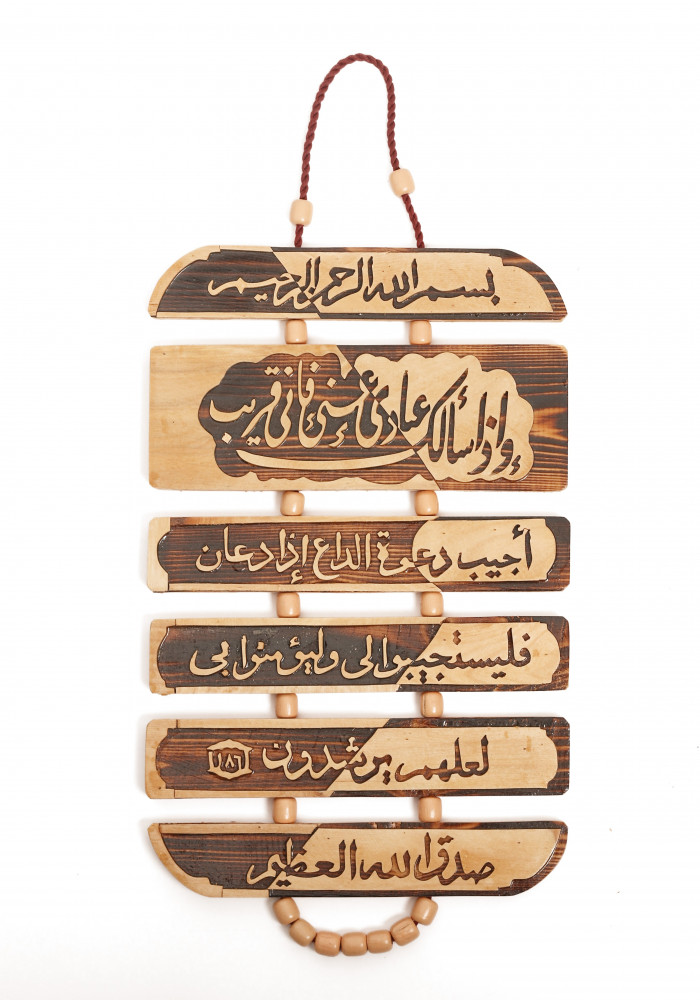 بسم الله الرحمن الرحيم
وإذا سألك عبادي عني فإني قريب
أجيب دعوة الداع إذا دعان
فليستجيبوا لي وليؤمنوا بي
لعلهم يرشدون ١٨٦
صدق الله العظيم